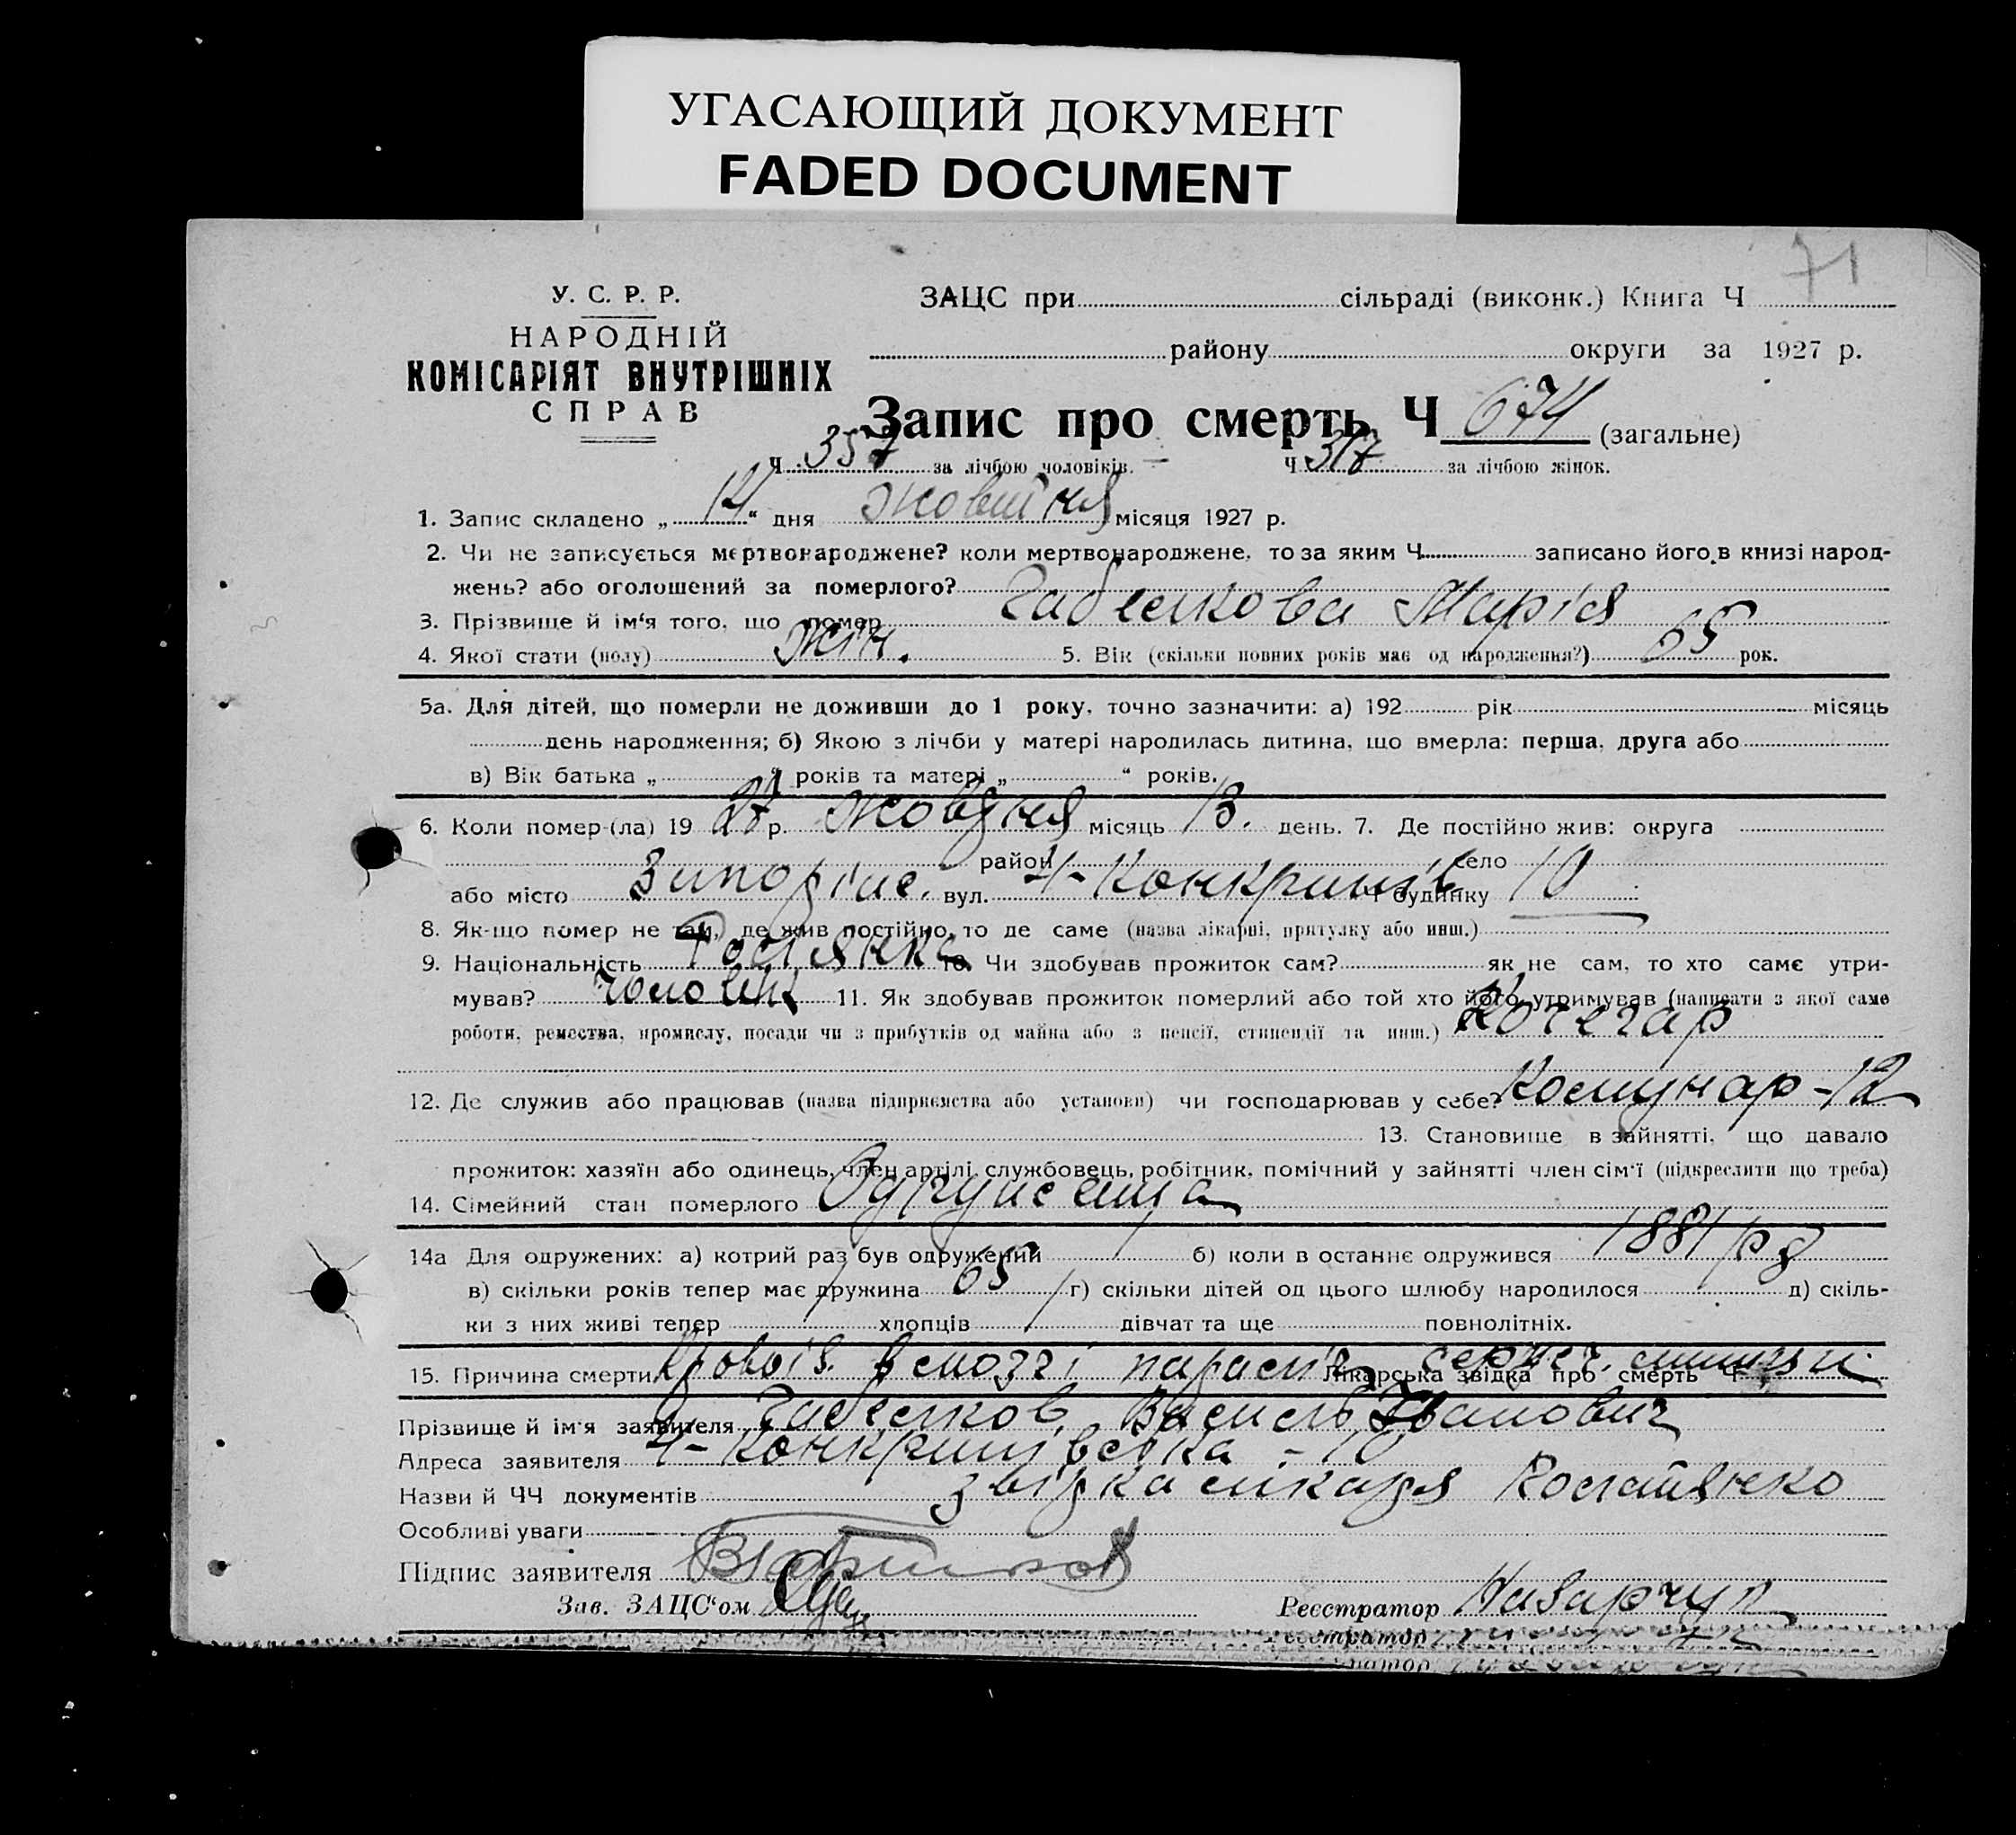 УГАСАЮЩИЙ ДОКУМЕНТ
FADED DOCUMENT
71
У. С. Р. Р.
НАРОДНІЙ
КОМІСАРІЯТ ВНУТРІШНІХ
СПРАВ
ЗАЦС при сільраді (виконк.) Книга Ч
району округи за 1927 р.
Запис про смерть Ч 674 (загальне)
Ч 357 за лічбою чоловіків. Ч 317 за лічбою жінок.
1. Запис складено „ 14 “ дня жовтня місяця 1927 р.
2. Чи не записується мертвонароджене? коли мертвонароджене, то за яким Ч записано його в книзі народ-
жень? або оголошений за померлого?
3. Прізвище й ім‘я того, що помер Марія
4. Якої стати (полу) жін. 5. Вік (скільки повних років має од народження?) 65 рок.
5а. Для дітей, що померли не доживши до 1 року, точно зазначити: а) 192 рік місяць
день народження; б) Якою з лічби у матері народилась дитина, що вмерла: перша, друга або
в) Вік батька „ “ років та матері „ “ років.
6. Коли помер-(ла) 19 27 р. жовтня місяць 13. день. 7. Де постійно жив: округа
район село
або місто вул. 4- Ч будинку 10
8. Як-що помер не там, де жив постійно, то де саме (назва лікарні, притулку або инш.)
9. Національність 10. Чи здобував прожиток сам? як не сам, то хто саме утри-
мував? чоловік 11. Як здобував прожиток померлий або той хто його утримував (написати з якої саме
роботи, ремества, промислу, посади чи з прибутків од майна або з пенсії, стипендії та инш.) Кочегар
12. Де служив або працював (назва підприємства або установи) чи господарював у себе? Комунар -12
13. Становище в зайнятті, що давало
прожиток: хазяїн або одинець, член артілі, службовець, робітник, помічний у зайнятті член сім‘ї (підкреслити що треба)
14. Сімейний стан померлого Одружена
14а Для одружених: а) котрий раз був одружений 1 б) коли в останнє одружився 1881
в) скільки років тепер має дружина 65 г) скільки дітей од цього шлюбу народилося д) скіль-
ки з них живі тепер хлопців дівчат та ще повнолітніх.
15. Причина смерти Лікарська звідка про смерть Ч
Прізвище й ім‘я заявителя Василь Іванович
Адреса заявителя 4- - 10
Назви й ЧЧ документів звідка лікаря
Особливі уваги
Підпис заявителя
Зав. ЗАЦС‘ом Реєстратор Назарчук